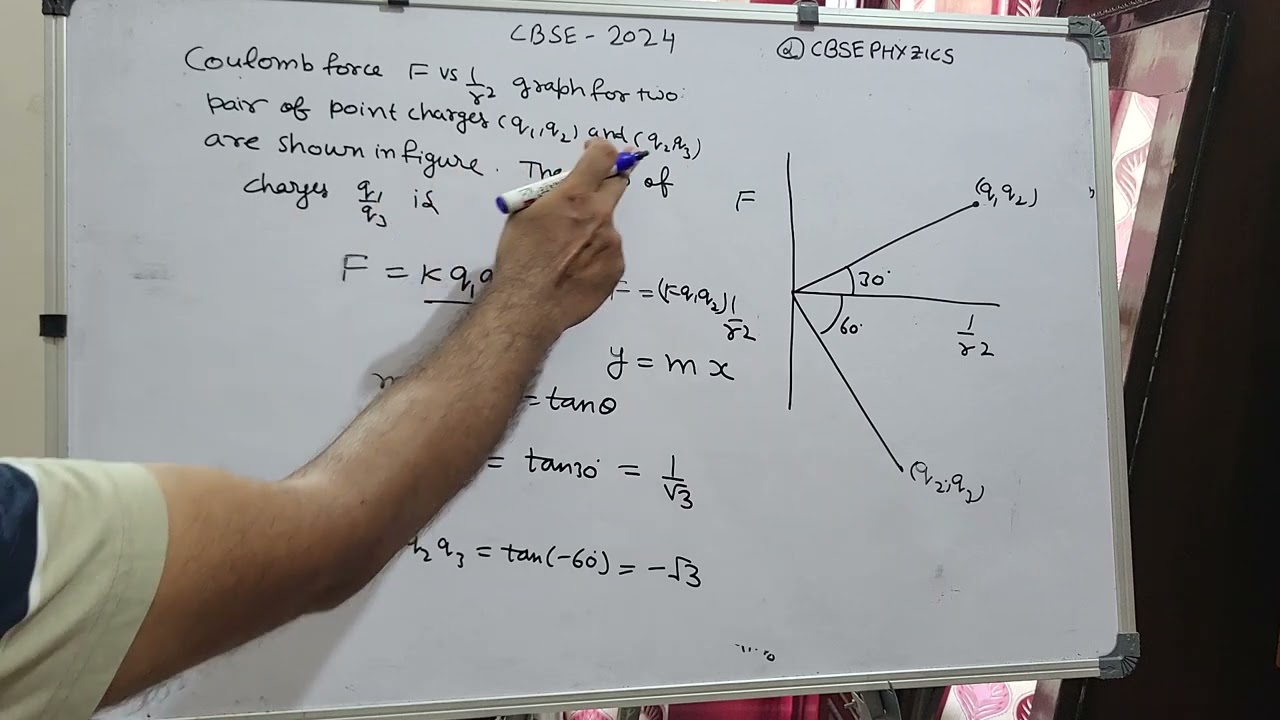 CBSE - 2024
@CBSEPHYZICS
Coulomb force F vs 1/r2 graph for two
pair of point charges (q1, q2) and (q2 q3)
are shown in figure. The of
charges q1/q3 is
F = K q1
F = (Kq1q2) 1/r2
y = m x
= tanθ
= tan30° = 1/√3
q2 q3 = tan(-60°) = -√3
F
(q1 q2)
30°
60°
1/r2
(q2, q3)